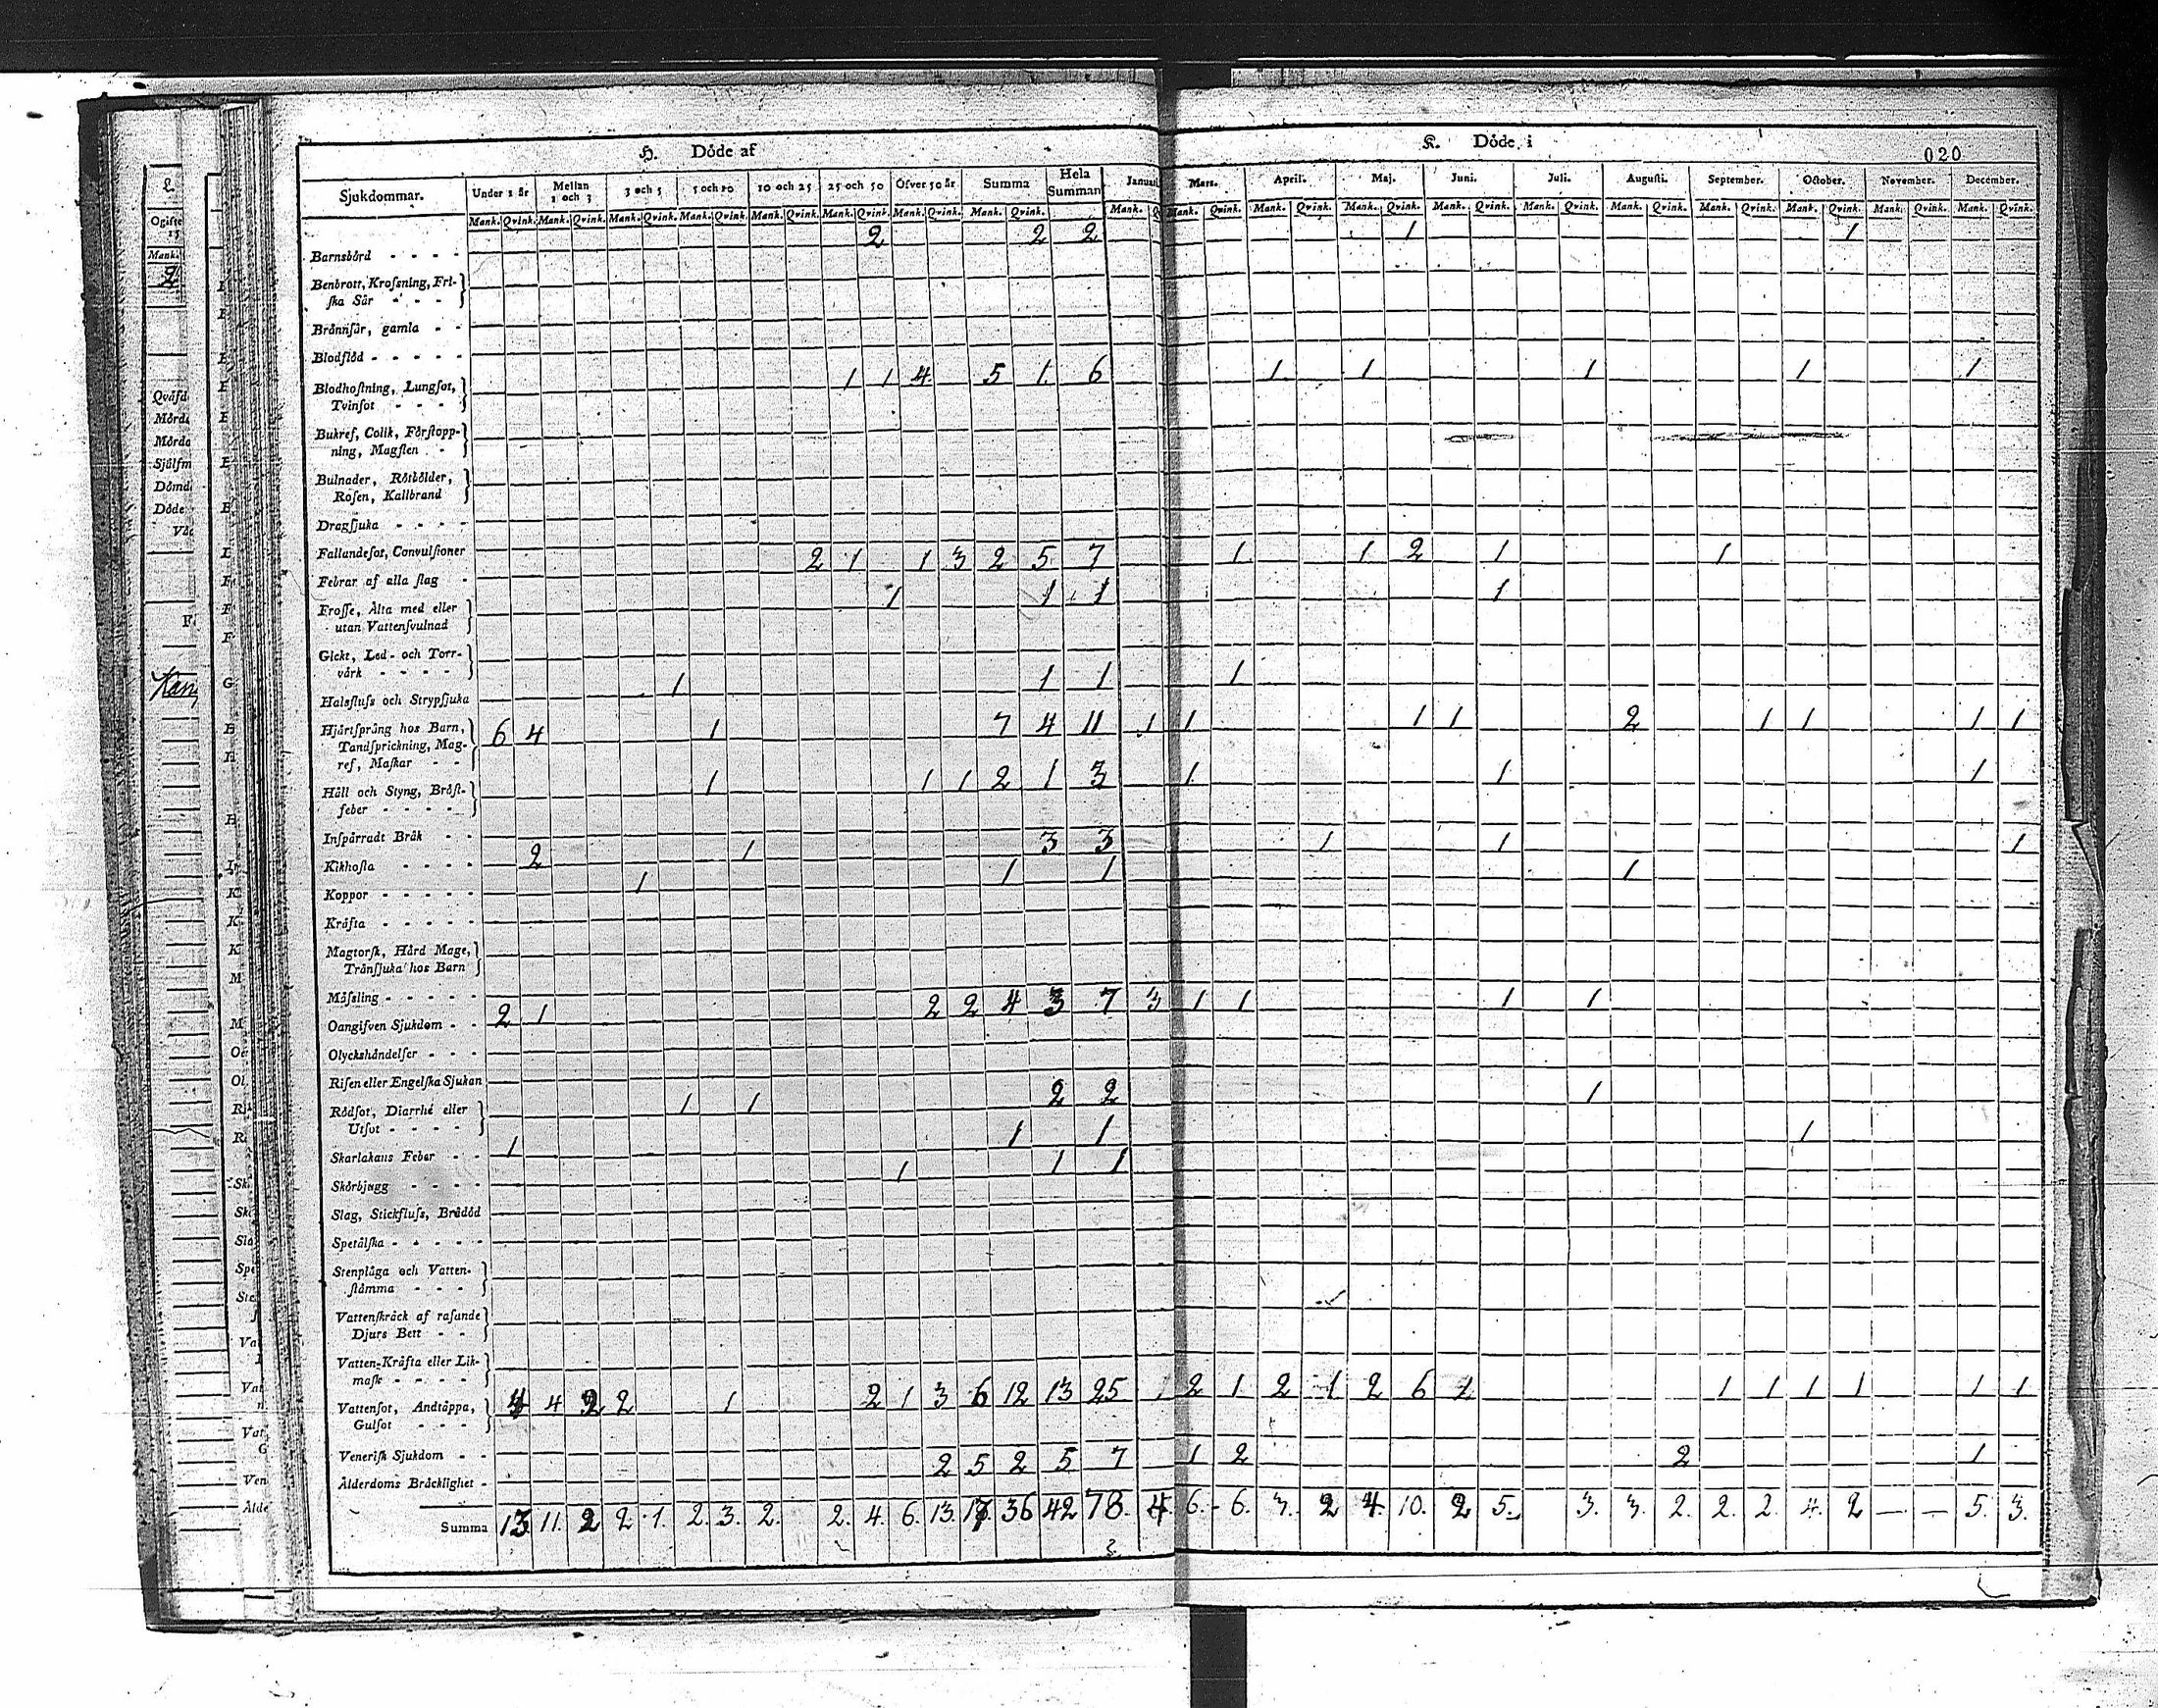 H. Döde af
K. Döde i
020
Sjukdommar. Under 1 år Mellan 1 och 3 3 och 5 5 och 10 10 och 25 25 och 50 Öfver 50 år Summa Hela Summan Januari Mars. April. Maj. Juni. Juli. Augusti. September. October. November. December.
Mank. Qvink. Mank. Qvink. Mank. Qvink. Mank. Qvink. Mank. Qvink. Mank. Qvink. Mank. Qvink. Mank. Qvink. Mank. Mank. Qvink. Mank. Qvink. Mank. Qvink. Mank. Qvink. Mank. Qvink. Mank. Qvink. Mank. Qvink. Mank. Qvink. Mank. Qvink. Mank. Qvink.
Barnsbörd - - - - 2 2 2 1 1
Benbrott, Krosning, Fri-
ska Sår - - - -
Brännsår, gamla - -
Blodflöd - - - - -
Blodhostning, Lungsot, 1 1 4 5 1 6 1 1 1 1 1
Tvinsot - - - -
Bukref, Colik, Förstopp-
ning, Magsten -
Bulnader, Rötbölder,
Rosen, Kallbrand
Dragsjuka - - - -
Fallandesot, Convulsioner
Febrar af alla slag - 2 1 1 3 2 5 7 1 1 2 1 1
Frosse, Älta med eller 1 1 1 1
utan Vattensvulnad
Gickt, Led- och Torr-
värk - - - -
Halsfluss och Strypsjuka 1 1 1 1
Hjärtsprång hos Barn, 6 4 1 7 4 11 1 1 1 1 2 1 1 1 1
Tandsprickning, Mag-
ref, Maskar - -
Håll och Styng, Bröst- 1 1 1 2 1 3 1 1 1
feber - - - -
Inspärradt Bråk - -
Kikhosta - - - - 2 1 3 3 1 1 1
Koppor - - - - - 1 1 1 1
Kräfta - - - - -
Magtorsk, Hård Mage,
Trånsjuka hos Barn
Mässling - - - - -
Oangifven Sjukdom - - 2 1 2 2 4 3 7 3 1 1 1 1
Olyckshändelser - - -
Risen eller Engelska Sjukan
Rödsot, Diarrhé eller 1 1 2 2 1
Utsot - - - -
Skarlakans Feber - - 1 1 1 1
Skörbjugg - - - - 1 1 1
Slag, Stickfluss, Brådöd
Spetälska - - - - -
Stenplåga och Vatten-
stämma - - -
Vattenskräck af rasande
Djurs Bett - -
Vatten-Kräfta eller Lik-
mask - - - -
Vattensot, Andtäppa, 4 4 2 2 1 2 1 3 6 12 13 25 2 1 2 1 2 6 1 1 1 1 1 1
Gulsot - - -
Venerisk Sjukdom - -
Ålderdoms Bräcklighet - 2 5 2 5 7 1 2 2 1
Summa 13 11. 2 2 1. 2. 3. 2. 2. 4. 6. 13. 17. 36 42 78. 4. 6. 6. 3. 2 4. 10. 2 5. 3. 3. 2. 2. 2. 4. 2 — — 5. 3.